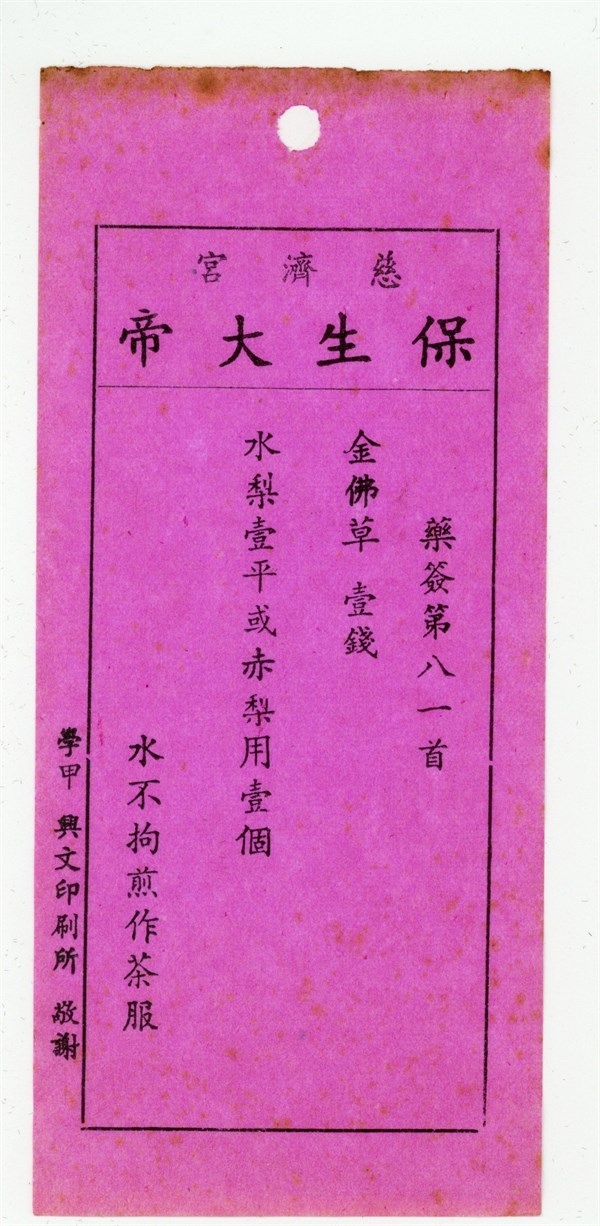 慈濟宮
保生大帝
藥簽第八一首
金佛草 壹錢
水梨壹平或赤梨用壹個
水不拘煎作茶服
學甲 興文印刷所 敬謝